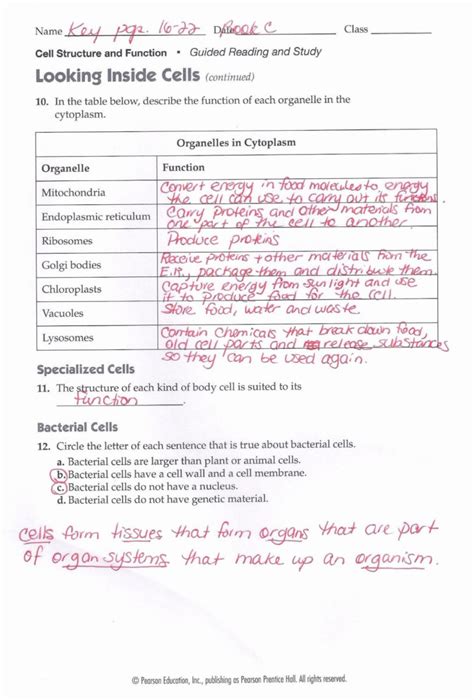 Name Key pgs. 16-22 Date Book C Class
Cell Structure and Function • Guided Reading and Study
Looking Inside Cells (continued)
10. In the table below, describe the function of each organelle in the
cytoplasm.
Organelles in Cytoplasm
Organelle Function
Mitochondria Convert energy in food molecules to energy
the cell can use to carry out its functions.
Endoplasmic reticulum Carry proteins and other materials from
one part of the cell to another.
Ribosomes Produce proteins
Golgi bodies Receive proteins + other materials from the
E.R., package them and distribute them.
Chloroplasts Capture energy from sunlight and use
it to produce food for the cell.
Vacuoles Store food, water and waste.
Lysosomes Contain chemicals that break down food,
old cell parts and release substances
so they can be used again.
Specialized Cells
11. The structure of each kind of body cell is suited to its
function.
Bacterial Cells
12. Circle the letter of each sentence that is true about bacterial cells.
a. Bacterial cells are larger than plant or animal cells.
b. Bacterial cells have a cell wall and a cell membrane.
c. Bacterial cells do not have a nucleus.
d. Bacterial cells do not have genetic material.
cells form tissues that form organs that are part
of organ systems that make up an organism.
© Pearson Education, Inc., publishing as Pearson Prentice Hall. All rights reserved.